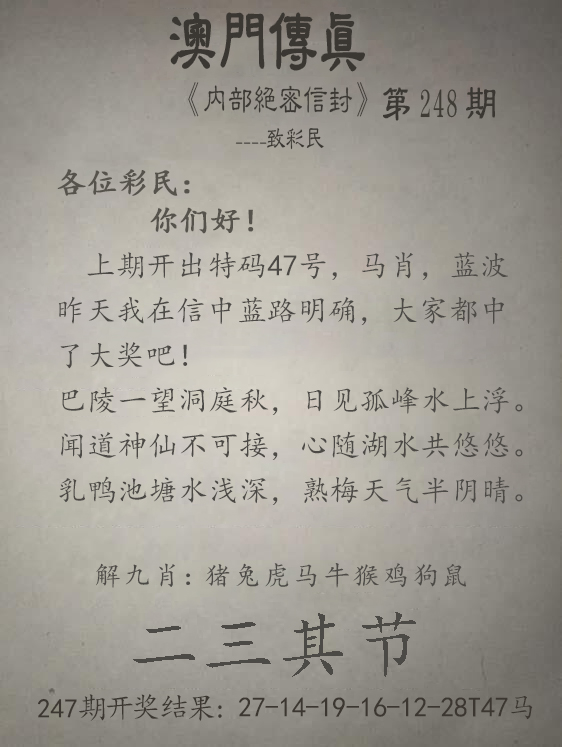 澳門傳真
《内部絕密信封》第248期
----致彩民
各位彩民：
你们好！
上期开出特码47号，马肖，蓝波
昨天我在信中蓝路明确，大家都中
了大奖吧！
巴陵一望洞庭秋，日见孤峰水上浮。
闻道神仙不可接，心随湖水共悠悠。
乳鸭池塘水浅深，熟梅天气半阴晴。
解九肖：猪兔虎马牛猴鸡狗鼠
二三其节
247期开奖结果：27-14-19-16-12-28T47马